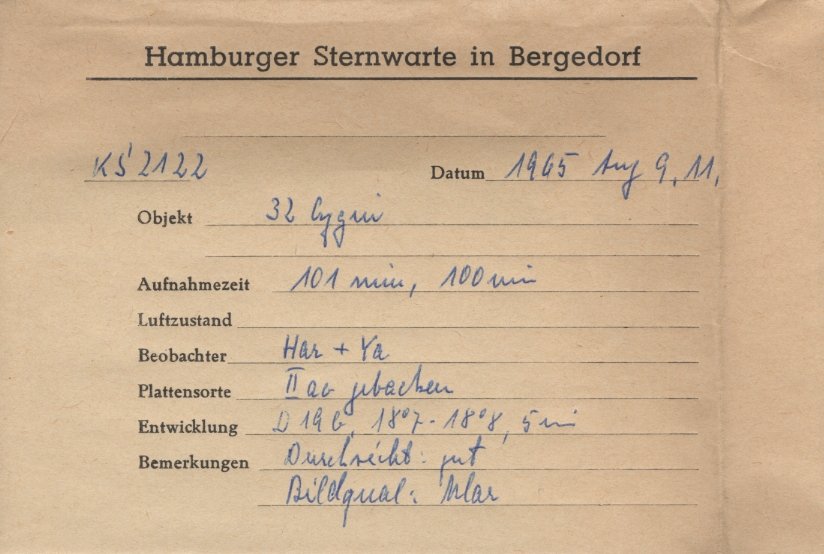 Hamburger Sternwarte in Bergedorf
KS 2122 Datum 1965 Aug 9, 11,
Objekt 32 Cygni
Aufnahmezeit 101 min, 100 min
Luftzustand
Beobachter Har + Ya
Plattensorte II ao gebacken
Entwicklung D 19 b, 18°7 - 18°8, 5 min
Bemerkungen Durchsicht: gut
Bildqual: klar